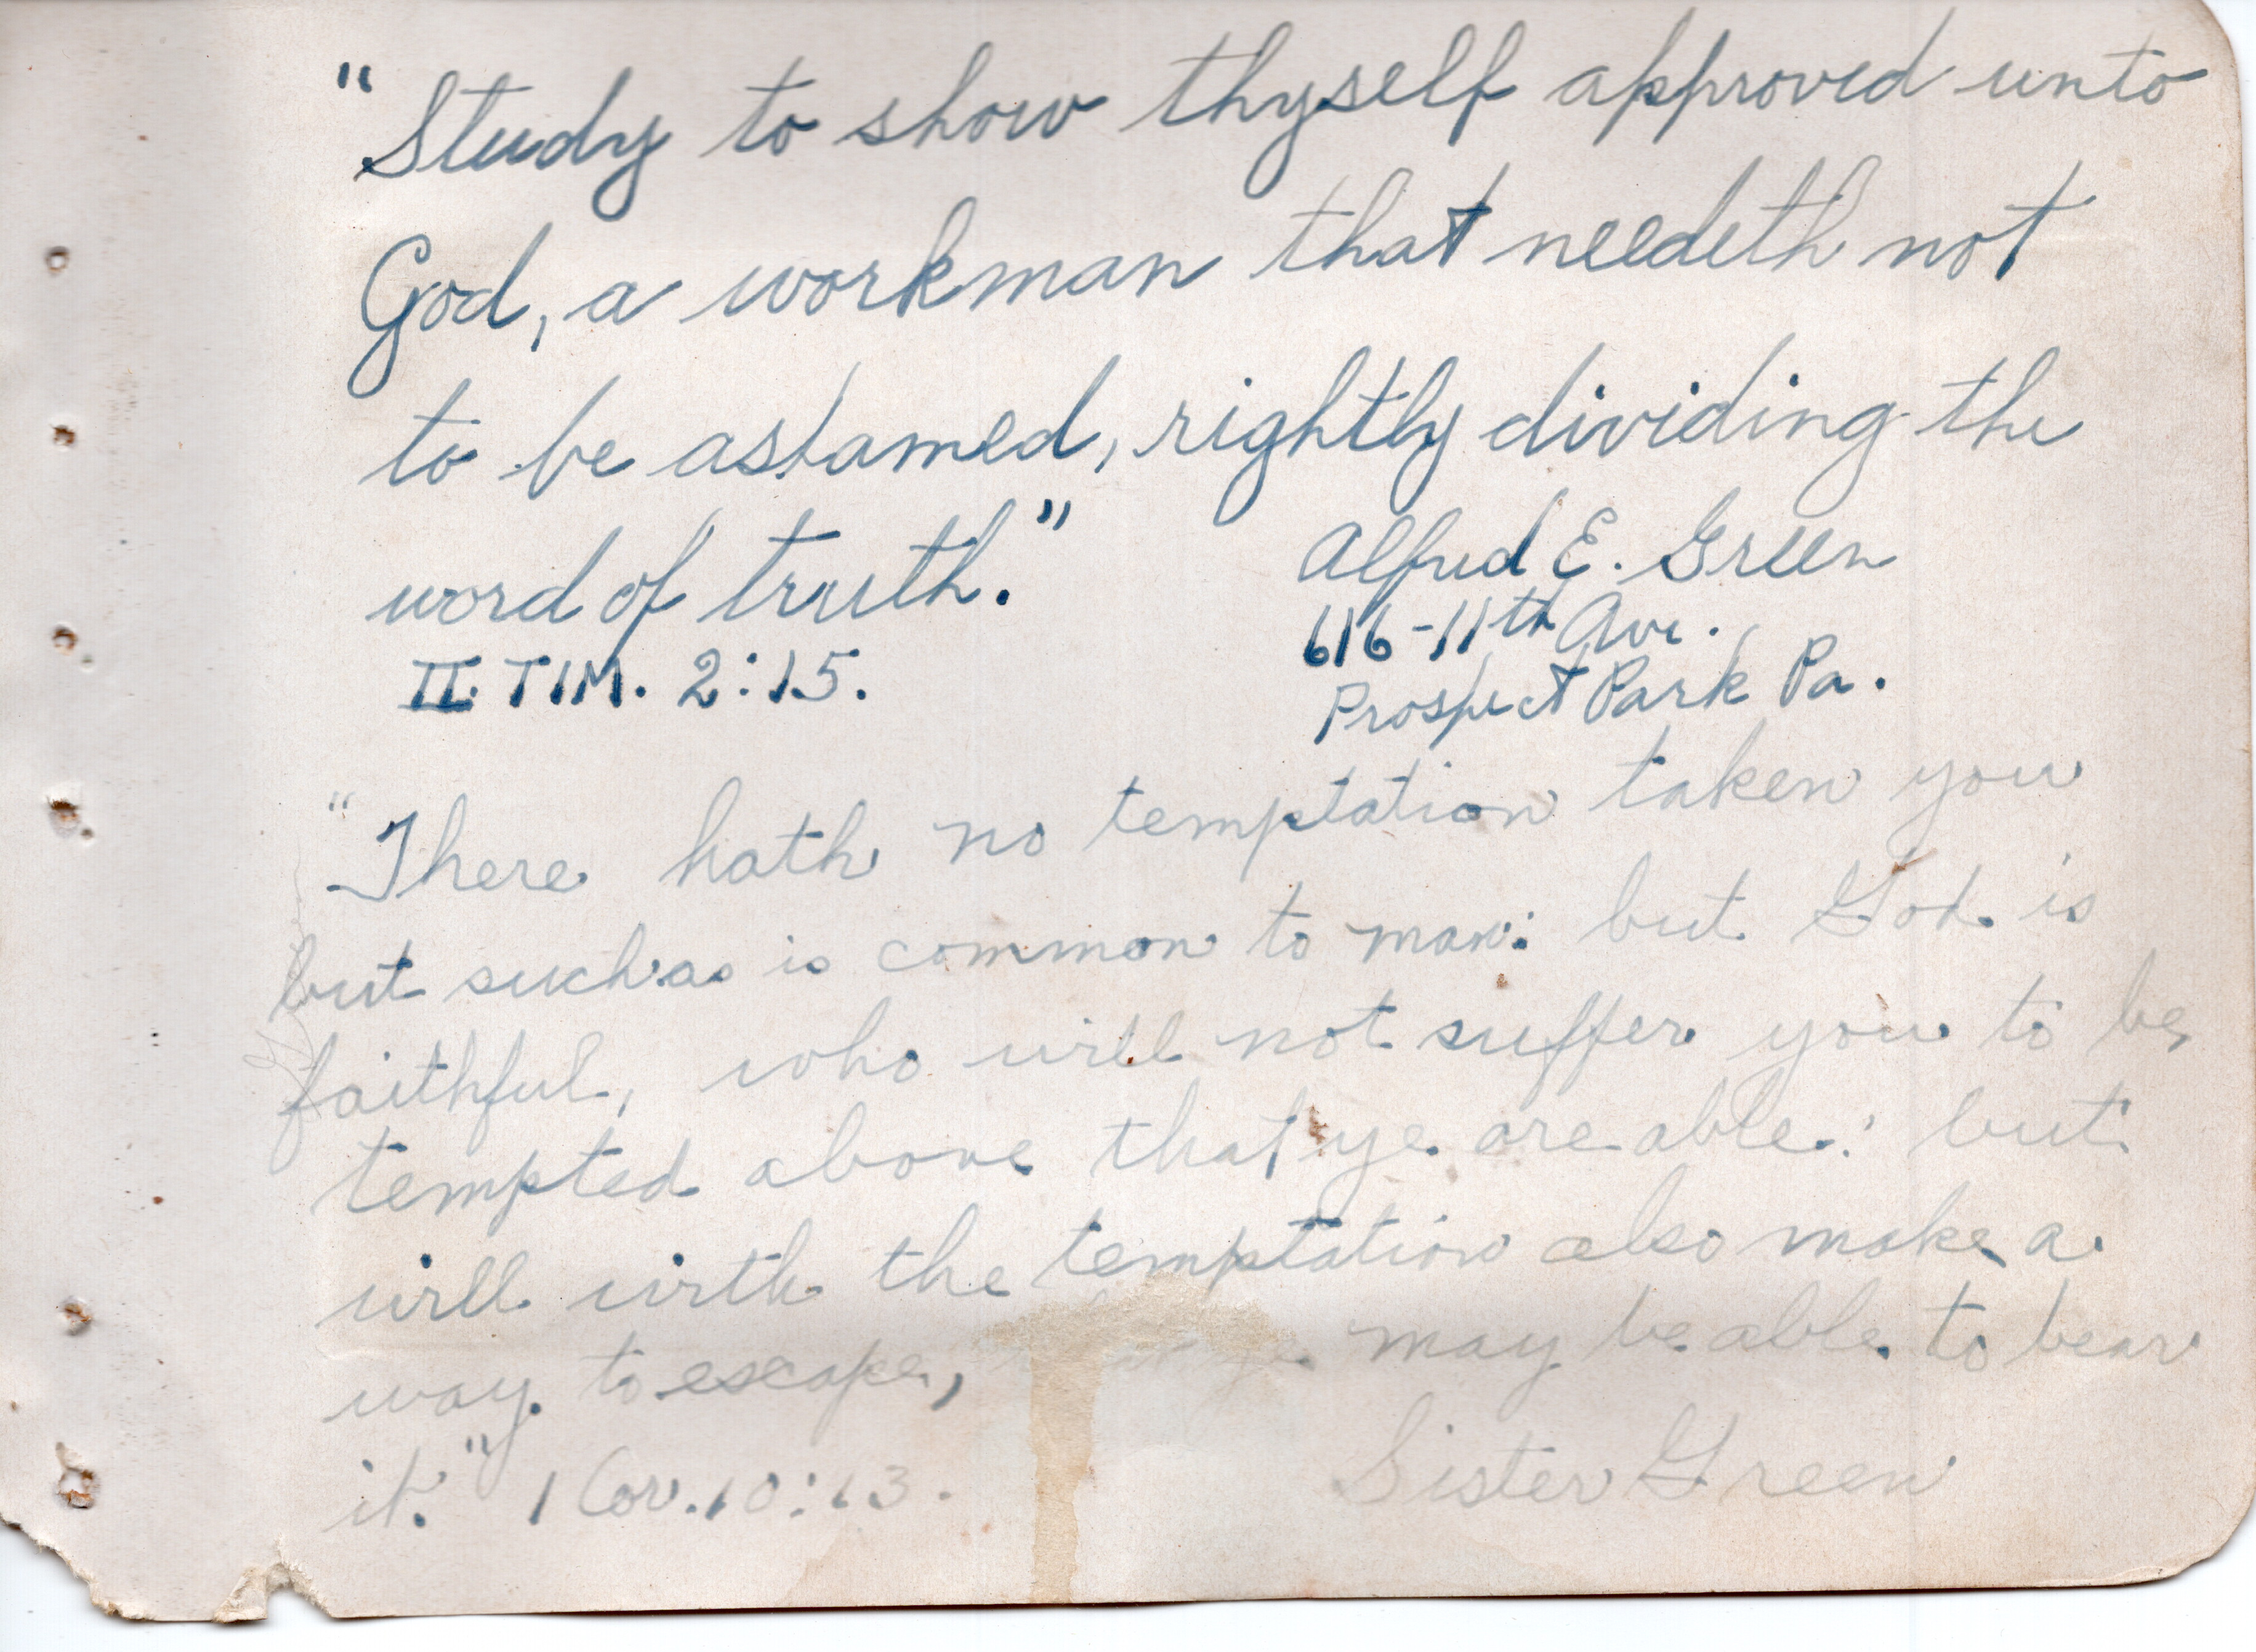 "Study to show thyself approved unto
God, a workman that needeth not
to be ashamed, rightly dividing the
word of truth."
II. TIM. 2:15.
Alfred E. Green
616-11th Ave.
Prospect Park Pa.
"There hath no temptation taken you
but such as is common to man: but God is
faithful, who will not suffer you to be
tempted above that ye are able: but
will with the temptation also make a
way to escape, ye may be able to bear
it." 1 Cor. 10:13.
Sister Green